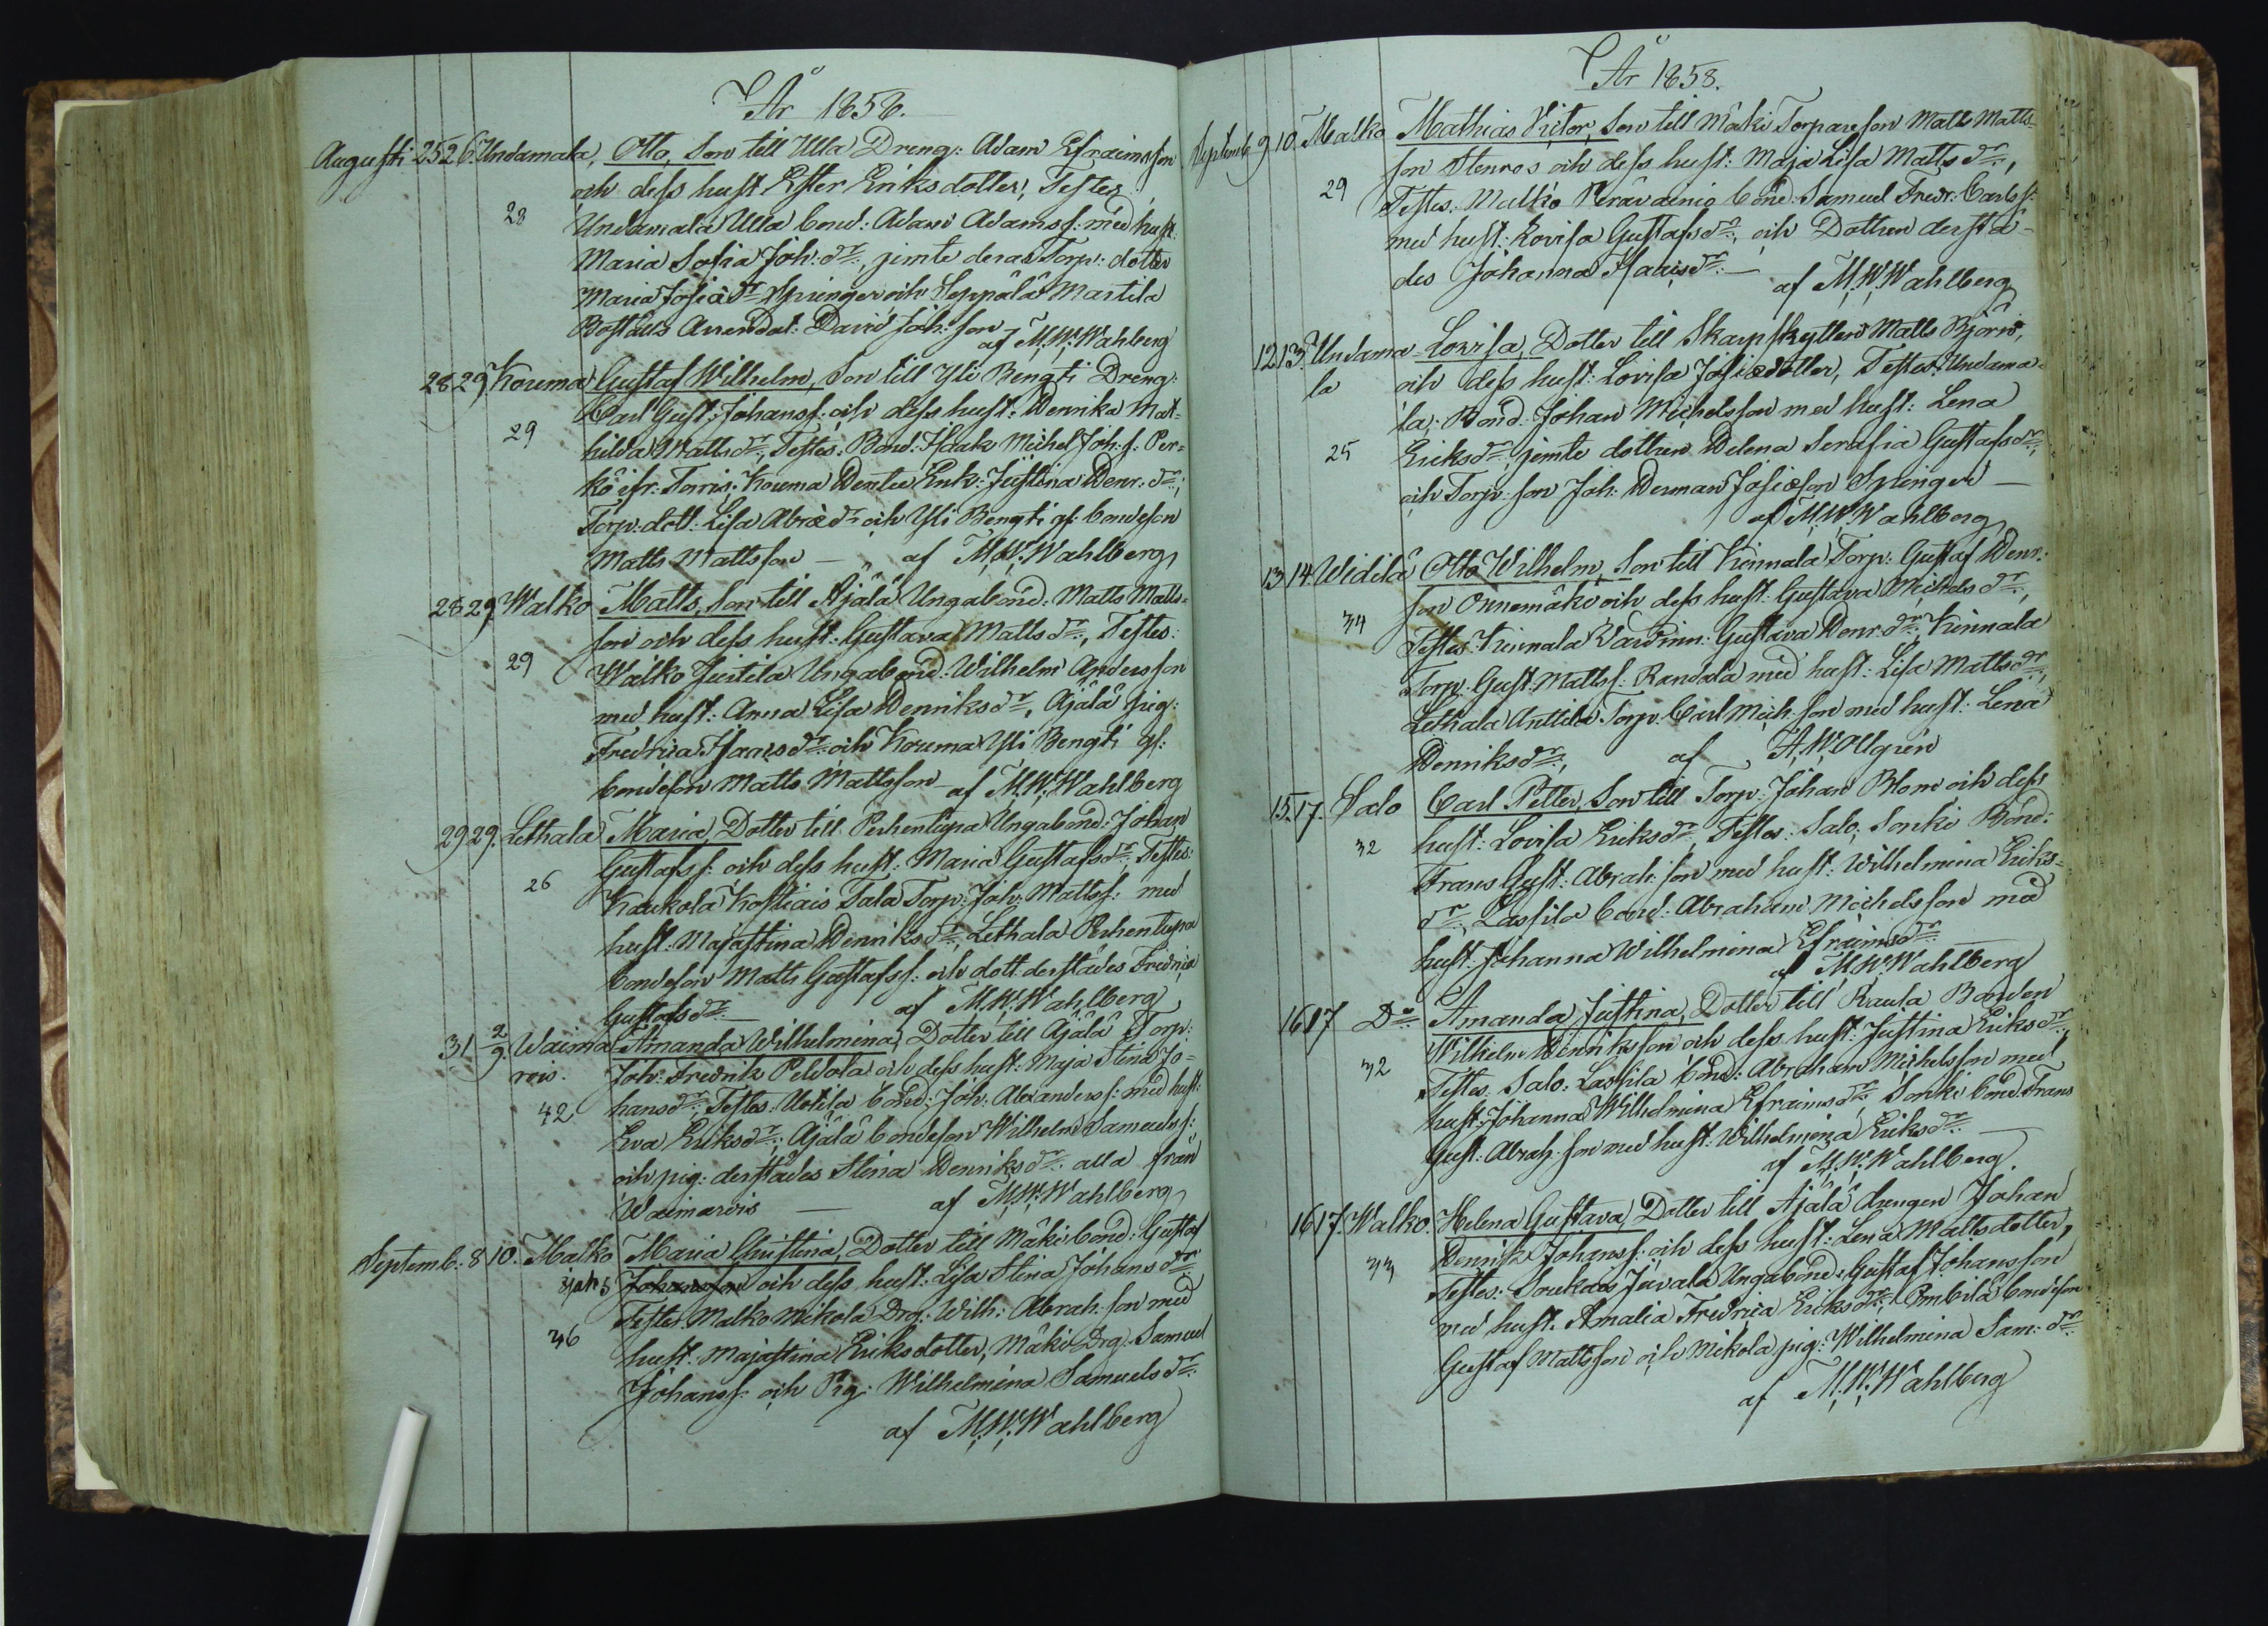 År 1858.
Augusti 25 26. Undamala, Otto, Son till Ulla Dreng: Adam Efraimsson
och dess hust Ester Eriksdotter, Testes
28 Undamala Ulla bond: Adam Adamss: med hust:
Maria Sofia Joh: dr, jemte deras Torp: dotter
Maria Josiæ dr Springer och Seppälä Martila
Boställs Arrendat: David Joh: son
af M.W.Wahlberg
28 29 Kouma Gustaf Wilhelm, Son till Yli Bengti Dreng:
Carl Gust: Johanss: och dess hust: Henrika Mat-
29 hilda Matts dr, Testes: Bond: Isaak Michel Joh: s: Per-
kö ifr: Torris: Kouma Enk: Justina Henr: dr;
Torp: dott: Lisa Abra: dr och Yli Bengti gf: bondeson
Matts Mattsson — af M.W.Wahlberg
28 29. Walko Matts, Son till Äjälä Ungabond: Matts Matts-
son och dess hust: Gustava Matts dr, Testes:
29 Walko Justila Ungabond: Wilhelm Andersson
med hust: Anna Lisa Henriks dr, Äjälä pig:
Fredrica Isaacs dr och Kouma Yli Bengti gf:
bondeson Matts Mattsson af M.W.Wahlberg
29 29. Lethala Maria, Dotter till Perhentupa Ungabond: Johan
Gustafs s: och dess hust: Maria Gustafs dr, Testes:
26 Kaukola Kostiais Tala Torp: Joh: Mattss: med
hust: Majastina Henriks dr, Lethala Perhentupa
bondeson Matts Gustafs s: och dott: derstädes Fredrica
Gustafs dr — af M.W.Wahlberg
31 2/9. Waima Amanda Wilhelmina, Dotter till Äjälä Torp:
rois. Joh: Fredrik Peldola och dess hust: Maja Stina Jo-
42 hans dr, Testes: Uotila bond: Joh: Alexanders s: med hust:
Eva Eriks dr; Äjälä bondeson Wilhelm Samuels s:
och pig: derstädes Stina Henriks dr alla från
Waimarois — af M.W.Wahlberg
Septemb: 8 10. Malko Maria Christina, Dotter till Mäki bond: Gustaf
Johansson och dess hust: Lisa Stina Johans dr
Testes: Malko Mikola Drg: Wilh: Abrah: son med
36 hust: Majastina Eriksdotter, Mäki Drg: Samuel
Johanss: och Pig: Wilhelmina Samuels dr
af M.W.Wahlberg
År 1858.
Septemb: 9 10. Malko Mathias Victor, Son till Mäki Torpareson Matts Matts-
son Stenros och dess hust: Maja Lisa Matts dr,
29 Testes: Malko bond: Samuel Fredr: Carls s:
med hust: Lovisa Gustafs dr, och Dottren derstä-
des Johanna Isaacs dr —
af M.W.Wahlberg
12 13. Undama- Lovisa, Dotter till Skarpskytten Matts Björn,
la och dess hust: Lovisa Josiædotter, Testes: Undama-
la: Bond: Johan Michelsson med hust: Lena
25 Eriks dr, jemte dottren Helena Serafia Gustafs dr,
och Torp: son Joh: Herman Josiæson Springer —
af M.W.Wahlberg
13 14. Widilä Otto Wilhelm, Son till Kinnala Torp: Gustaf Henr:
son Onnemäki och dess hust: Gustava Michels dr,
34 Testes: Kinnala Vardinn: Gustava Henr: dr, Kinnala
Torp: Gust: Matts s: Randala med hust: Lisa Matts dr,
Lethala Anttila Torp: Carl Mich: son med hust: Lena
Henriks dr, af A.W.Ollgren
15. 17. Salo Carl Petter, Son till Torp: Johan Blom och dess
32 hust: Lovisa Eriks dr, Testes: Salo: Sonki Bond:
Frans Gust: Abrah: son med hust: Wilhelmina Eriks-
dr, Lassila bond: Abraham Michelsson med
hust: Johanna Wilhelmina Efraims dr
af M.W.Wahlberg
16 17 Do Amanda Justina, Dotter till Rausa Bonden
Wilhelm Henriksson och dess hust: Justina Eriks dr,
32 Testes: Salo: Lassila bond: Abraham Michelsson med
hust: Johanna Wilhelmina Efraims dr, Sonki bond: Frans
Gust: Abrah: son med hust: Wilhelmina Eriks dr —
af M.W.Wahlberg.
16 17. Walko. Helena Gustava, Dotter till Äjälä drengen Johan
Henrik Johanss: och dess hust: Lena Mattsdotter,
33 Testes: Soukais Juvala Ungabond: Gustaf Johansson
med hust: Amalia Fredrica Eriks dr; Pimbilä bondeson
Gustaf Mattsson och Mikola pig: Wilhelmina Sam: dr
af M.W.Wahlberg